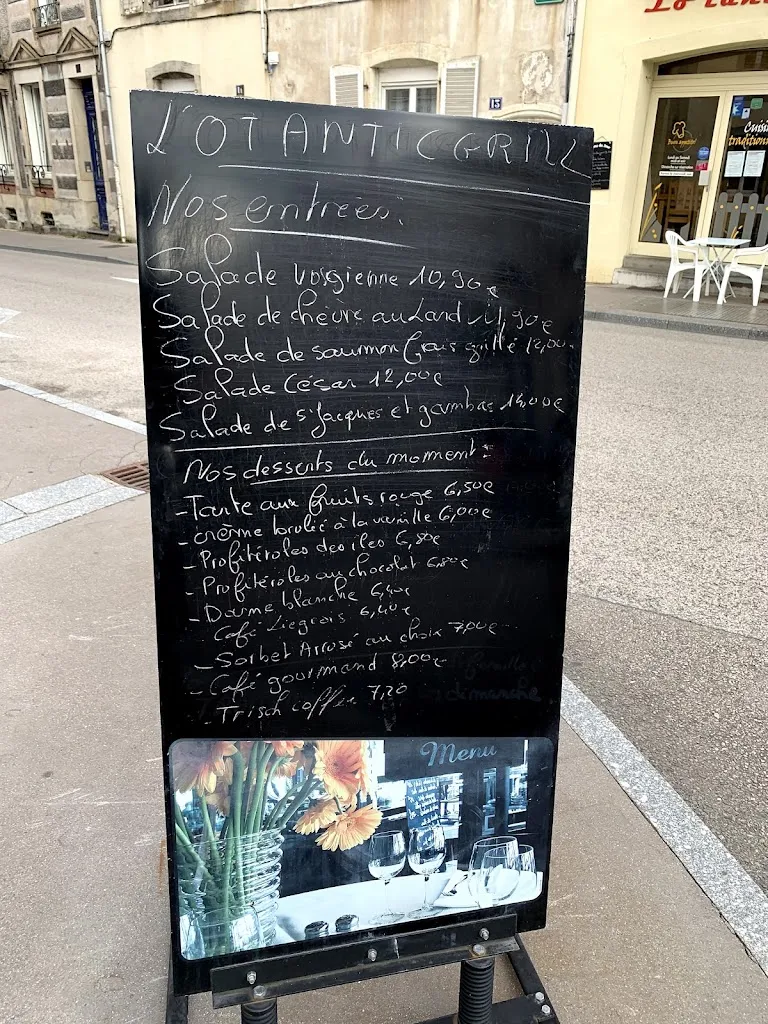 L'OTANTIC GRILL
Nos entrées:
Salade vosgienne 10,90€
Salade de chèvre au Lard 11,90€
Salade de saumon frais grillé 12,00
Salade César 12,00€
Salade de St Jacques et gambas 14,00€
Nos desserts du moment:
- Tarte aux fruits rouge 6,50€
- crème brulée à la vanille 6,00€
- Profitéroles des iles 6,80€
- Profitéroles au chocolat 6,80€
- Dame blanche 6,40€
- Café Liegeois 6,40€
- Sorbet Arrosé au choix 7,00€
- Café gourmand 8,00€
- Trisch coffee 7,20
dimanche
Menu
13
Cuisine
traditionn